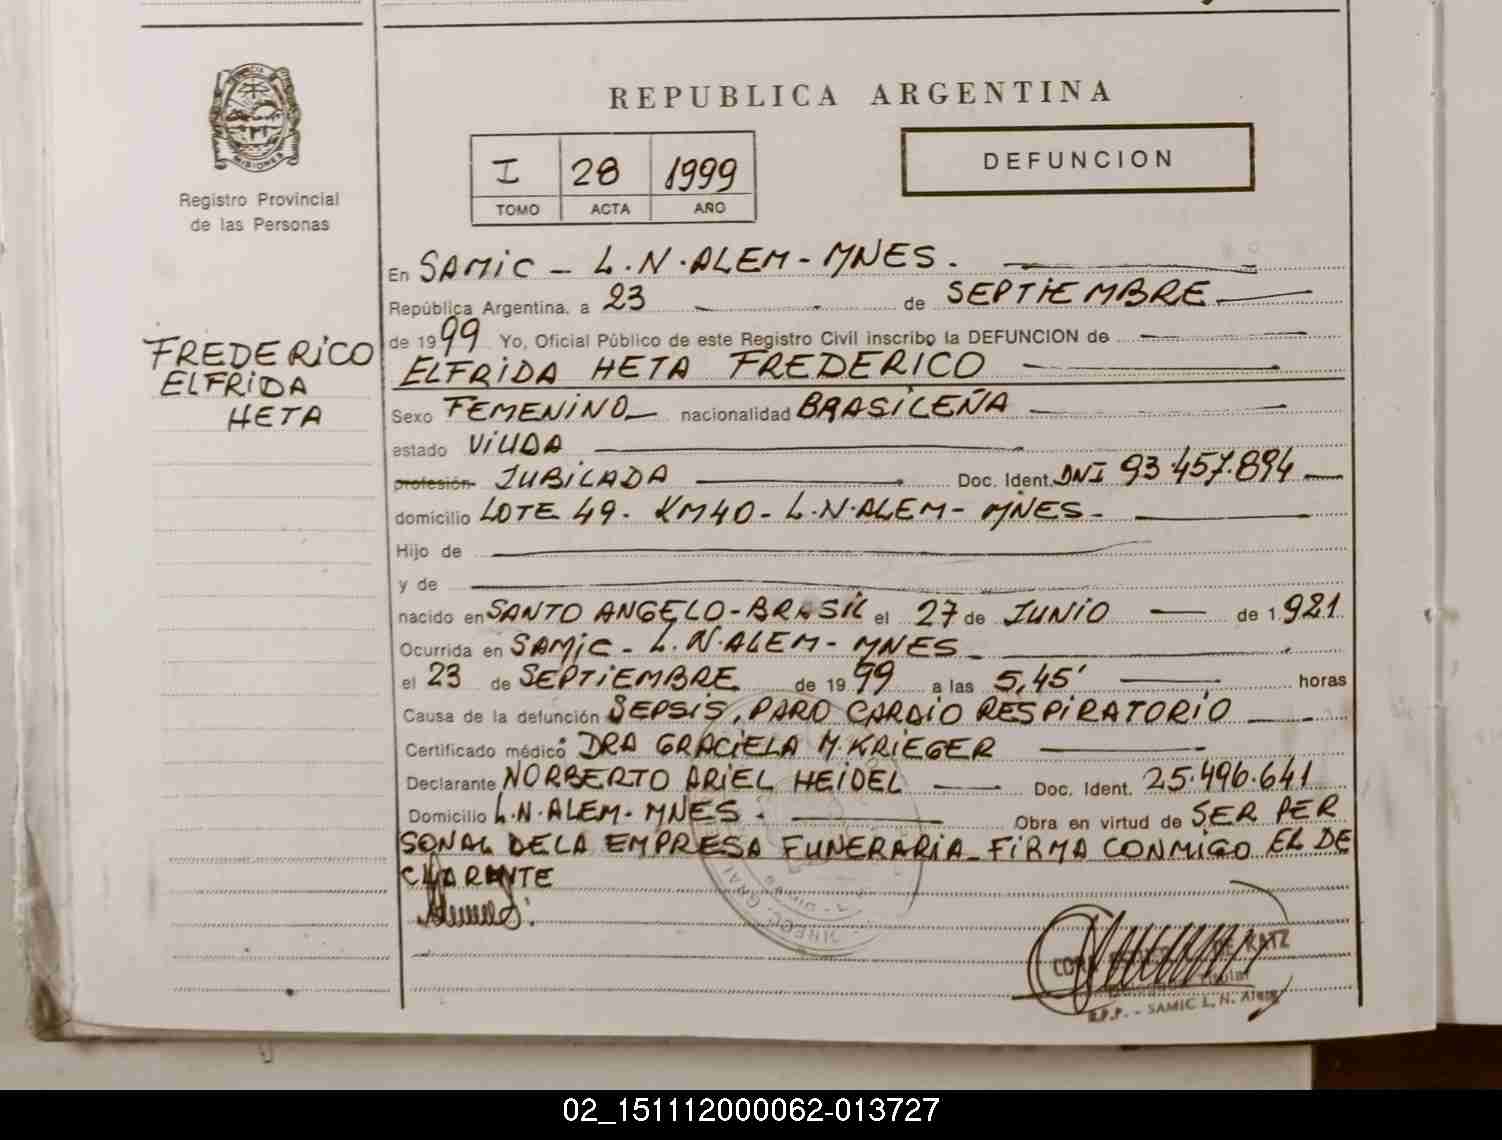 REPUBLICA ARGENTINA
DEFUNCION
I 28 1999
TOMO ACTA AÑO
MISIONES
Registro Provincial
de las Personas
FREDERICO
ELFRIDA
HETA
En SAMIC - L.N.ALEM - MNES.
República Argentina, a 23 de SEPTIEMBRE
de 1999 Yo, Oficial Público de este Registro Civil inscribo la DEFUNCION de
ELFRIDA HETA FREDERICO
Sexo FEMENINO nacionalidad BRASILEÑA
estado VIUDA
profesión JUBILADA Doc. Ident. DNI 93.457.894
domicilio LOTE 49 - KM40 - L.N.ALEM - MNES -
Hijo de
y de
nacido en SANTO ANGELO - BRASIL el 27 de JUNIO de 1.921
Ocurrida en SAMIC - L.N.ALEM - MNES
el 23 de SEPTIEMBRE de 1999 a las 5,45' horas
Causa de la defunción SEPSIS, PARO CARDIO RESPIRATORIO
Certificado médico DRA GRACIELA M. KRIEGER
Declarante NORBERTO ARIEL HEIDEL Doc. Ident. 25.496.641
Domicilio L.N.ALEM - MNES. Obra en virtud de SER PER
SONAL DE LA EMPRESA FUNERARIA - FIRMA CONMIGO EL DE
CLARENTE
DE RATZ
R.P.P. - SAMIC L. N. Alem
02_151112000062-013727